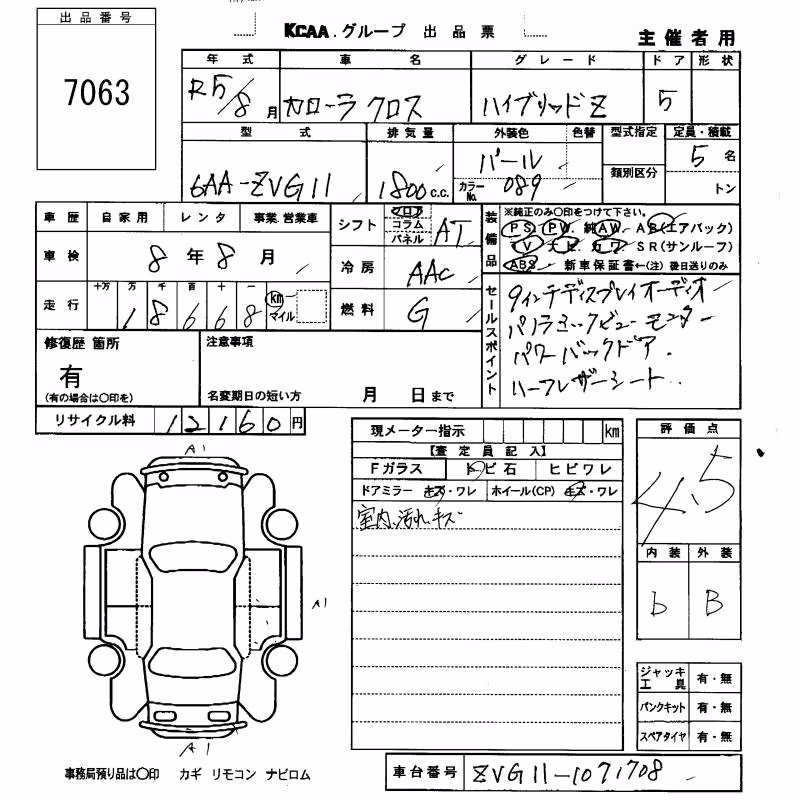 出品番号
7063
KCAA.グループ 出品票
主催者用
年式 車名 グレード ドア 形状
R5/8月 カローラクロス ハイブリッドZ 5
型式 排気量 外装色 色替 型式指定 定員・積載
6AA-ZVG11 1800c.c. パール カラーNo. 089 類別区分 5名
トン
車歴 自家用 レンタ 事業.営業車
シフト フロア コラム パネル AT
装備品 ※純正のみ○印をつけて下さい。
PS. PW. 純AW. AB(エアバック)
TV ナビ カワ SR(サンルーフ)
ABS 新車保証書←(注) 後日送りのみ
車検 8年8月
冷房 AAC
走行 十万 万 千 百 十 一
18668 km マイル
燃料 G
セールスポイント
9インチディスプレイオーディオ
パノラミックビューモニター
パワーバックドア.
ハーフレザーシート..
修復歴 箇所
有
(有の場合は○印を)
注意事項
名変期日の短い方 月 日まで
リサイクル料 12160円
現メーター指示 km
【査定員記入】
Fガラス トビ石 ヒビワレ
ドアミラー キズ・ワレ ホイール(CP) キズ・ワレ
室内.汚れ.キズ
評価点
4.5
内装 外装
b B
A1
A1
A1
ジャッキ工具 有・無
パンクキット 有・無
スペアタイヤ 有・無
事務局預り品は○印 カギ リモコン ナビロム
車台番号 ZVG11-1071708